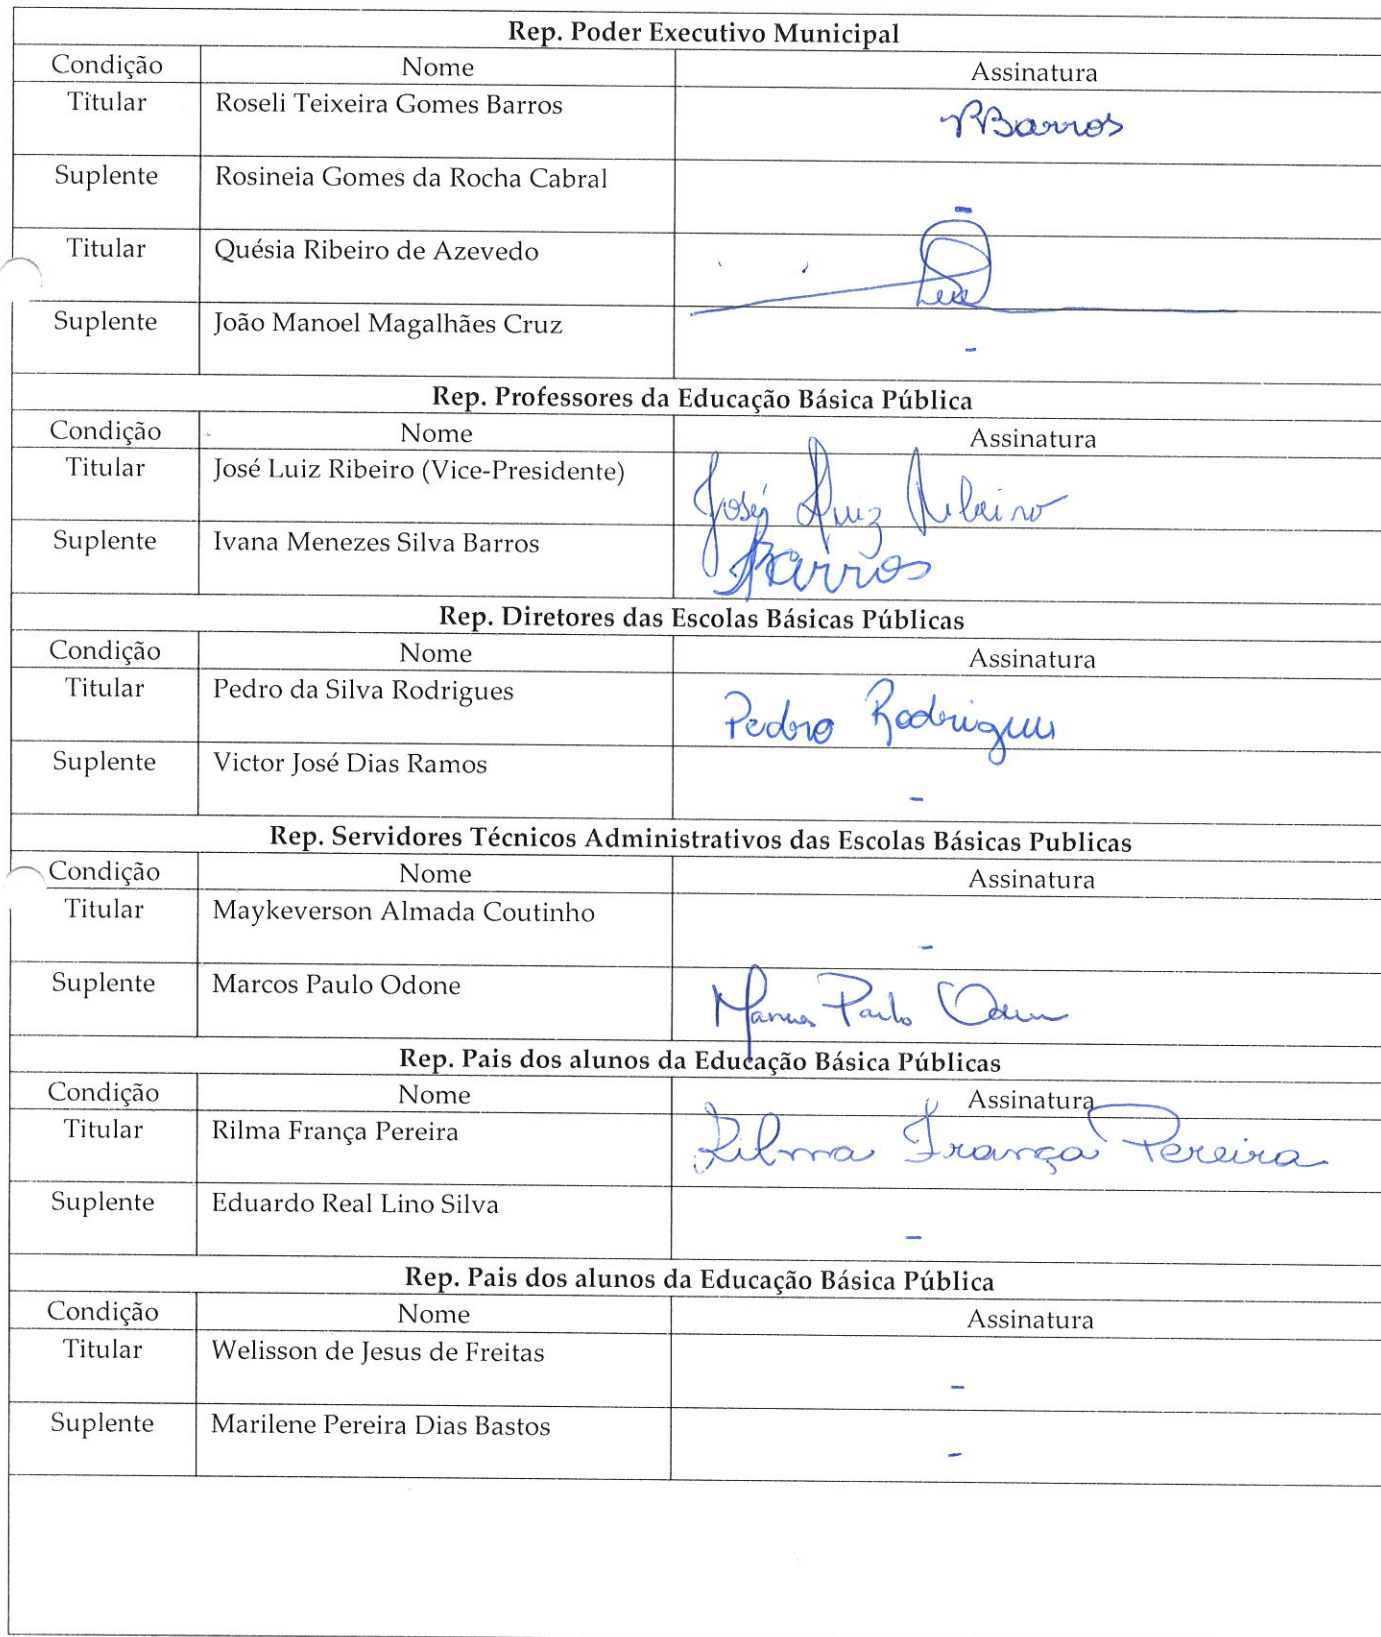 Rep. Poder Executivo Municipal
Condição Nome Assinatura
Titular Roseli Teixeira Gomes Barros RBarros
Suplente Rosineia Gomes da Rocha Cabral -
Titular Quésia Ribeiro de Azevedo
Suplente João Manoel Magalhães Cruz -
Rep. Professores da Educação Básica Pública
Condição Nome Assinatura
Titular José Luiz Ribeiro (Vice-Presidente) José Luiz Ribeiro
Suplente Ivana Menezes Silva Barros Barros
Rep. Diretores das Escolas Básicas Públicas
Condição Nome Assinatura
Titular Pedro da Silva Rodrigues Pedro Rodrigues
Suplente Victor José Dias Ramos -
Rep. Servidores Técnicos Administrativos das Escolas Básicas Publicas
Condição Nome Assinatura
Titular Maykeverson Almada Coutinho -
Suplente Marcos Paulo Odone Marcos Paulo Odone
Rep. Pais dos alunos da Educação Básica Públicas
Condição Nome Assinatura
Titular Rilma França Pereira Rilma França Pereira
Suplente Eduardo Real Lino Silva -
Rep. Pais dos alunos da Educação Básica Pública
Condição Nome Assinatura
Titular Welisson de Jesus de Freitas -
Suplente Marilene Pereira Dias Bastos -